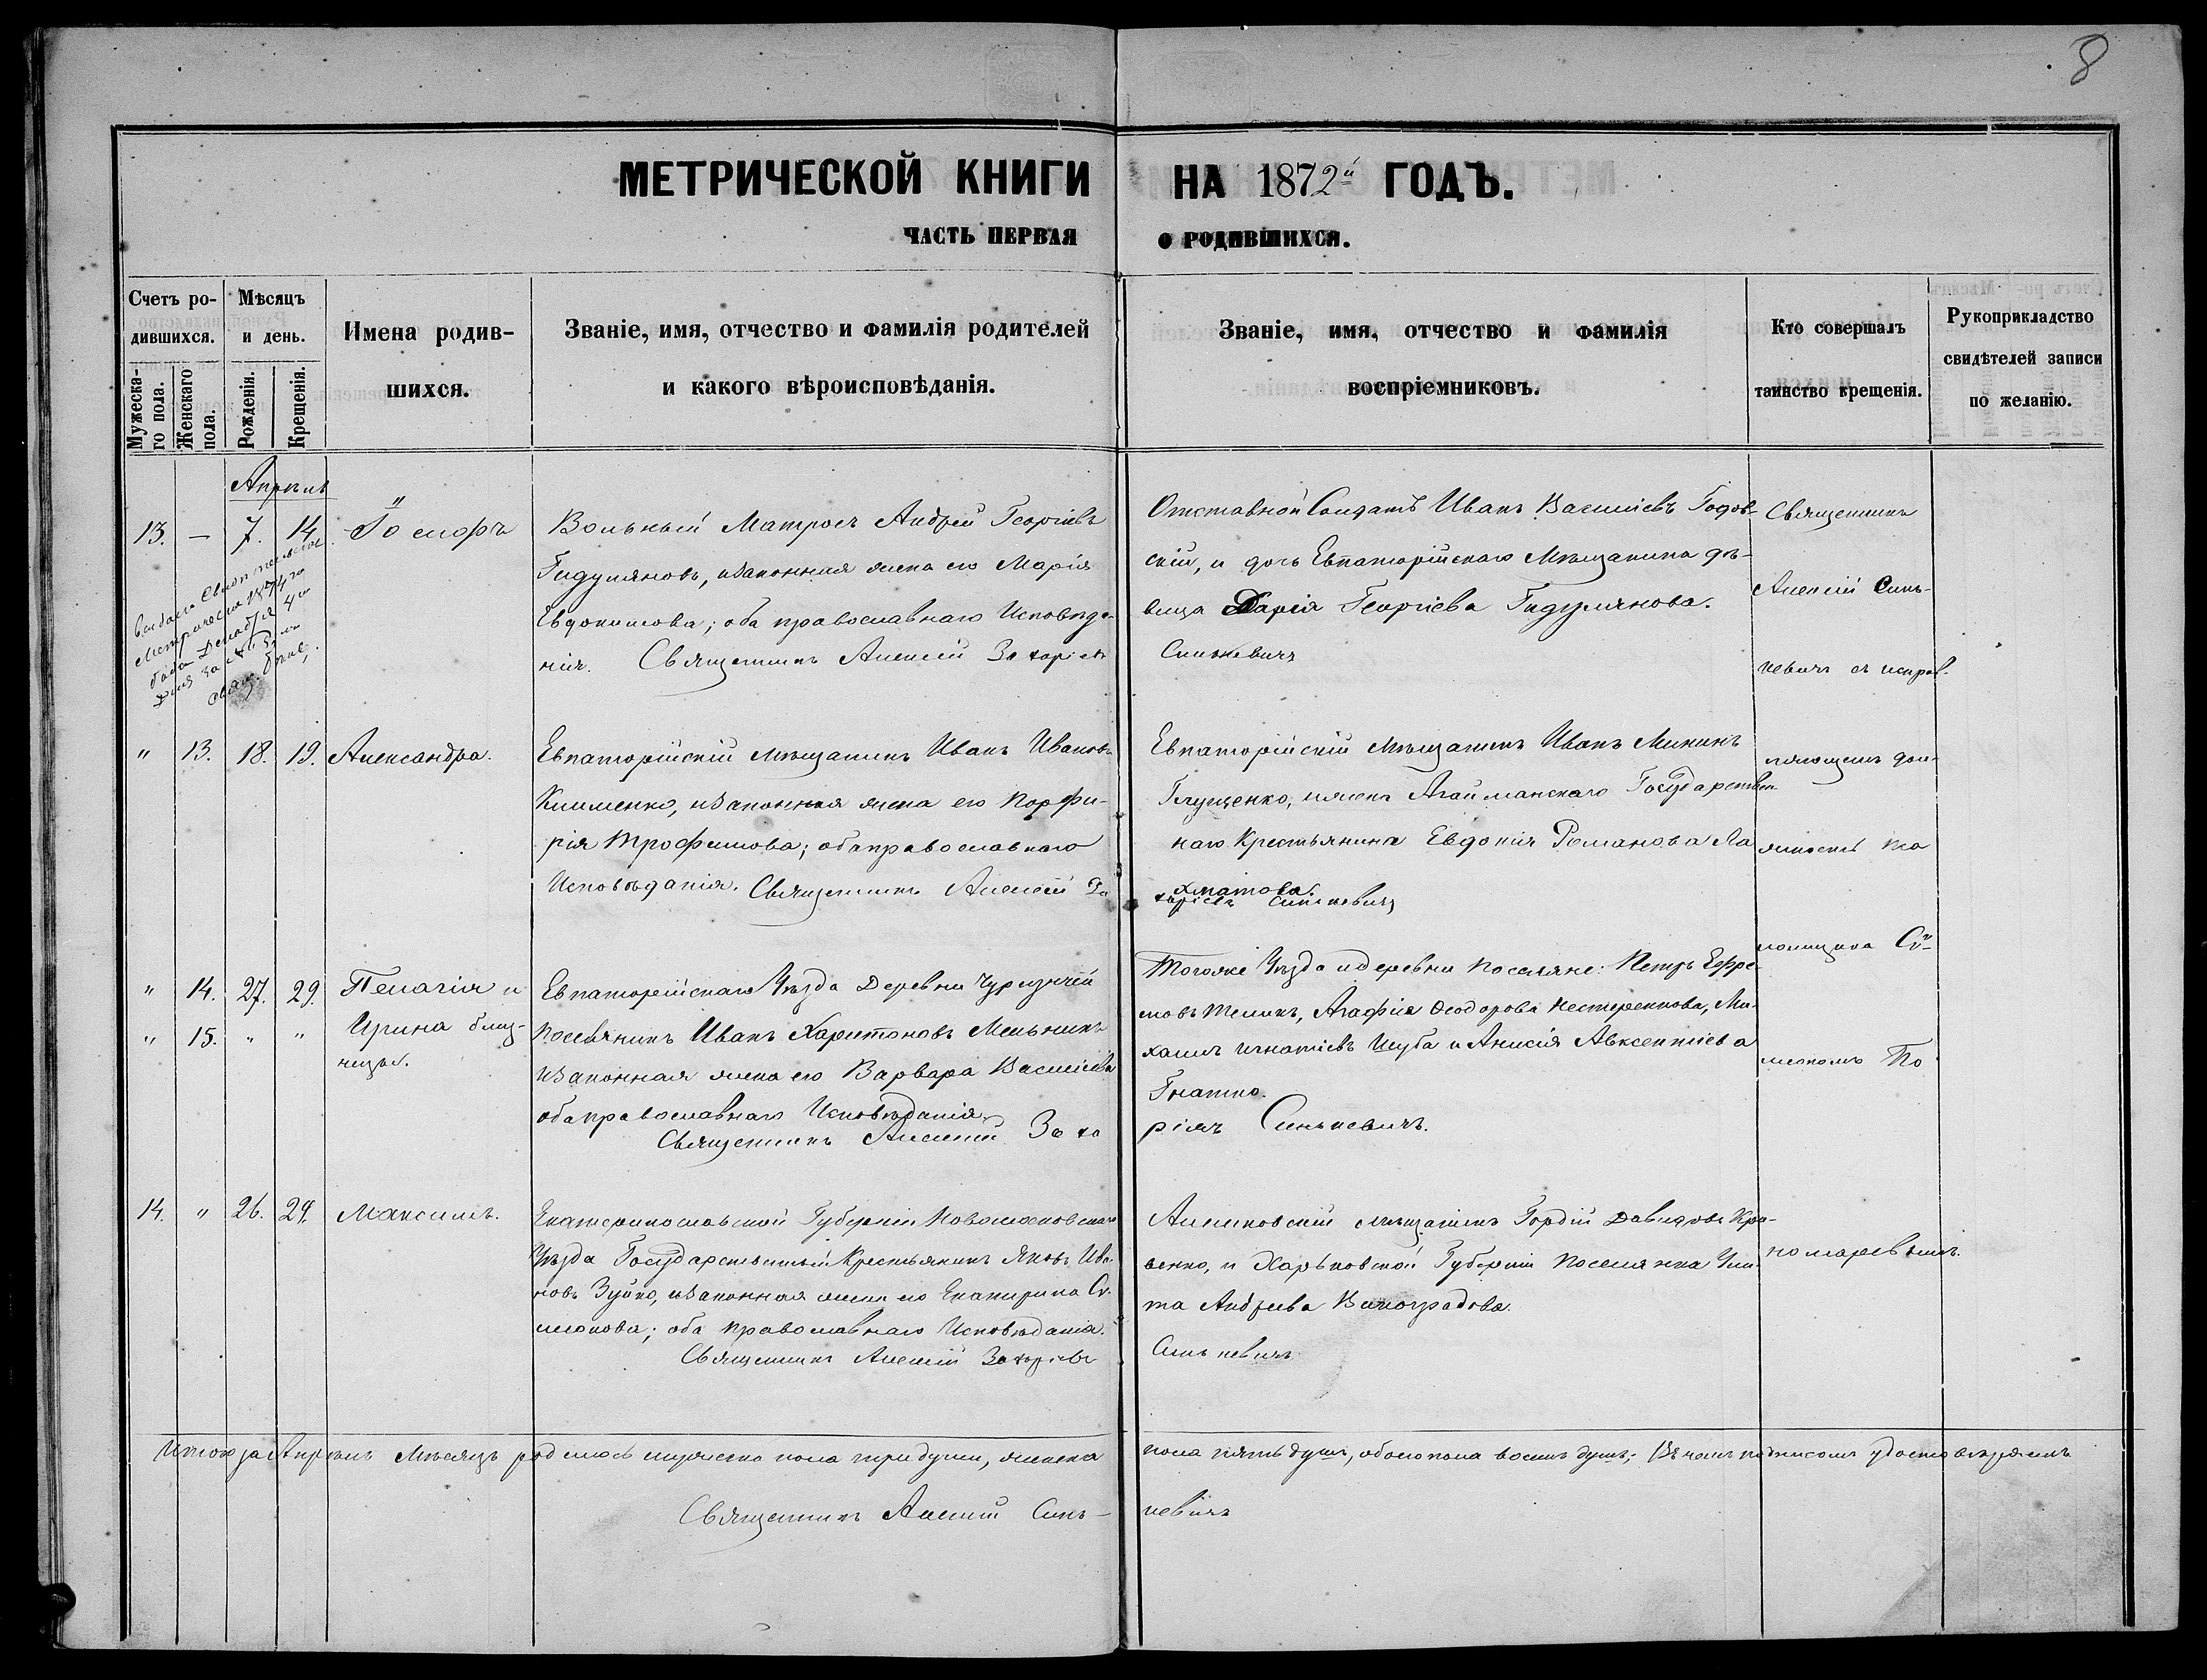 8
МЕТРИЧЕСКОЙ КНИГИ НА 1872й ГОДЪ.
ЧАСТЬ ПЕРВАЯ О РОДИВШИХСЯ.
Счетъ ро-
дившихся.
Мужеска-
го пола.
Женскаго
пола.
Мѣсяцъ
и день.
Рожденія.
Крещенія.
Имена родив-
шихся.
Званіе, имя, отчество и фамилія родителей
и какого вѣроисповѣданія.
Званіе, имя, отчество и фамилія
воспріемниковъ.
Кто совершалъ
таинство крещенія.
Рукоприкладство
свидѣтелей записи
по желанію.
Апрѣль
13. — 7. 14. Іосифъ
Вольный Матросъ Андрей Георгіевъ
Гидуляновъ, изаконная жена его Марія
Евдокимова; оба православнаго Исповѣда-
нія. Священникъ Алексій Захаріевъ
Отставной Солдатъ Иванъ Василіевъ Годов-
скій, и дочь Евпаторійскаго Мѣщанина дѣ-
вица Дарія Георгіева Гидулянова.
Синькевичъ
Священникъ
Алексій Синь-
кевичъ съ исправ-
ляющимъ дол-
жность
Метрическ 1874го
года Декабря 4го
дня за №
" 13. 18. 19. Александра.
Евпаторійскій мѣщанинъ Иванъ Ивановъ
Клименко, изаконная жена его Порфи-
рія Трофимова; обаправославнаго
Исповѣданія. Священникъ Алексій За
Евпаторійскій мѣщанинъ Иванъ Мининъ
Глущенко, ижена Агайманскаго Государствен
наго Крестьянина Евдокія Романова Ла
хматова.
харіевъ Синькевичъ
" 14. 27. 29. Пелагія и
" 15. " " Ирина близ-
нецы.
Евпаторійскаго Уѣзда Деревни
поселянинъ Иванъ Харитоновъ Мельникъ
изаконная жена его Варвара Василіева
обаправославнаго Исповѣданія.
Священникъ Алексій Заха
Тогоже Уѣзда идеревни поселяне: Петръ Ефре-
мовъ Теликъ, Агафія Ѳеодорова Нестеренкова, Ми-
хаилъ Игнатіевъ Шуба и Анисія Авксентіева
Гнатко.
ріевъ Синькевичъ.
14. " 26. 29. Максимъ.
Екатеринославской Губерніи Новомосковскаго
Уѣзда Государственный Крестьянинъ Яковъ Ива-
новъ Зуйко, изаконная жена его Екатерина Си-
меонова; оба православнаго Исповѣданія.
Священникъ Алексій Захаріевъ
Алешковскій мѣщанинъ Гордій Давидовъ Кра-
венко, и Харьковской Губерніи поселянка Ули-
та Андреева Виноградова.
Синькевичъ
меономъ По
номаревымъ.
Итого за Апрѣль Мѣсяцъ родилось мужеска пола три души, женска пола пять душъ, обоего пола восемь душъ;
Священникъ Алексій Синь-
кевичъ